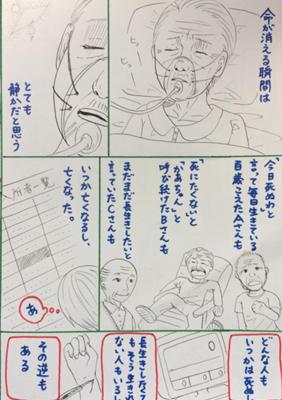 命が消える瞬間は
とても
静かだと思う
「今日死ぬわ」と
言って毎日生きている
百歳こえたAさんも
「死にたくない」と
「かあちゃん」と
呼び続けたBさんも
まだまだ長生きしたいと
言っていたCさんも
いつか亡くなるし、
亡くなった。
入所者一覧
あ…
どんな人も
いつかは死ぬし
長生きしたくても
そう生きれ
ない人もいるし
その逆も
ある